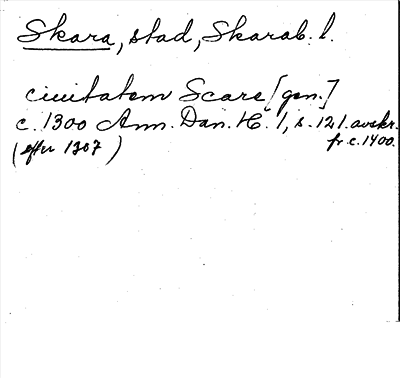 Skara, stad, Skarab. l.
ciuitatem Scare [gen.]
c. 1300 Ann. Dan. H. 1, s. 121. avskr.
(efter 1307) fr. c. 1400.